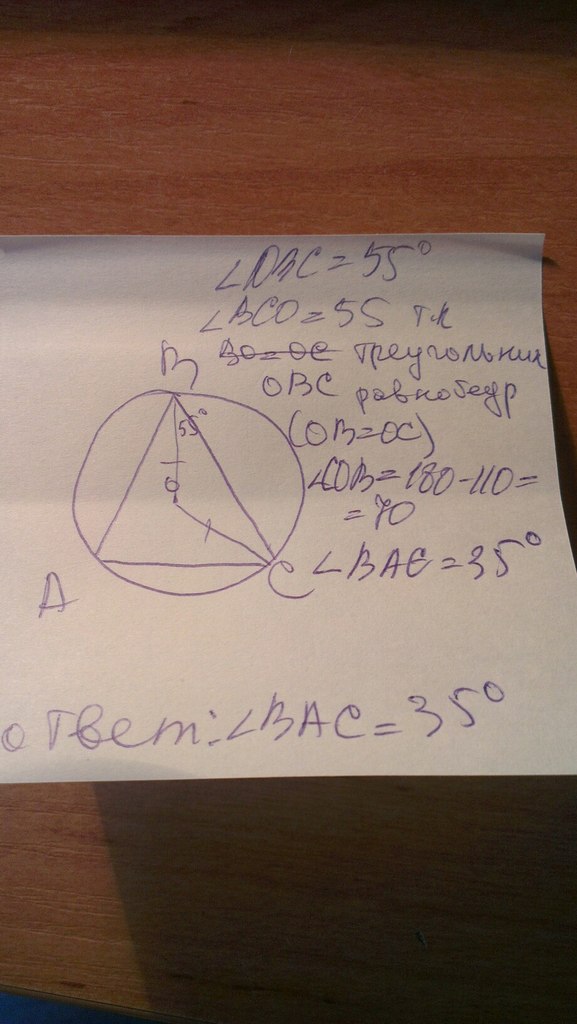 ∠OBC = 55°
∠BCO = 55 т.к
BO = OC треугольник
OBC равнобедр
(OB=OC)
∠COB = 180-110 =
= 70
∠BAC = 35°
B
55°
O
A
C
ответ: ∠BAC = 35°